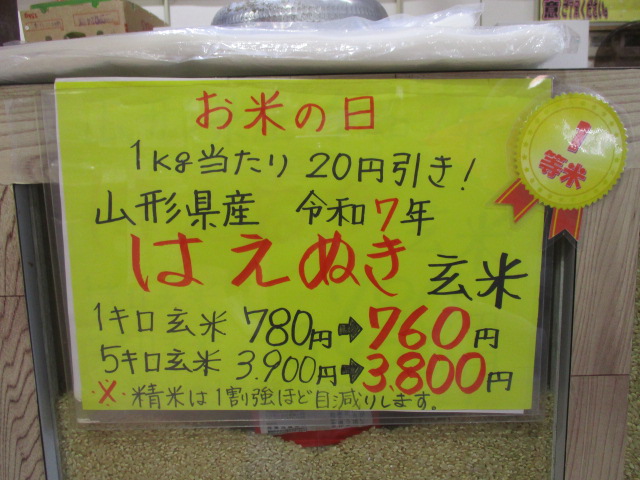 お米の日
1kg当たり 20円引き!
山形県産 令和7年
はえぬき 玄米
1キロ玄米 780円→760円
5キロ玄米 3.900円→3.800円
※精米は1割強ほど目減りします。
1
等米